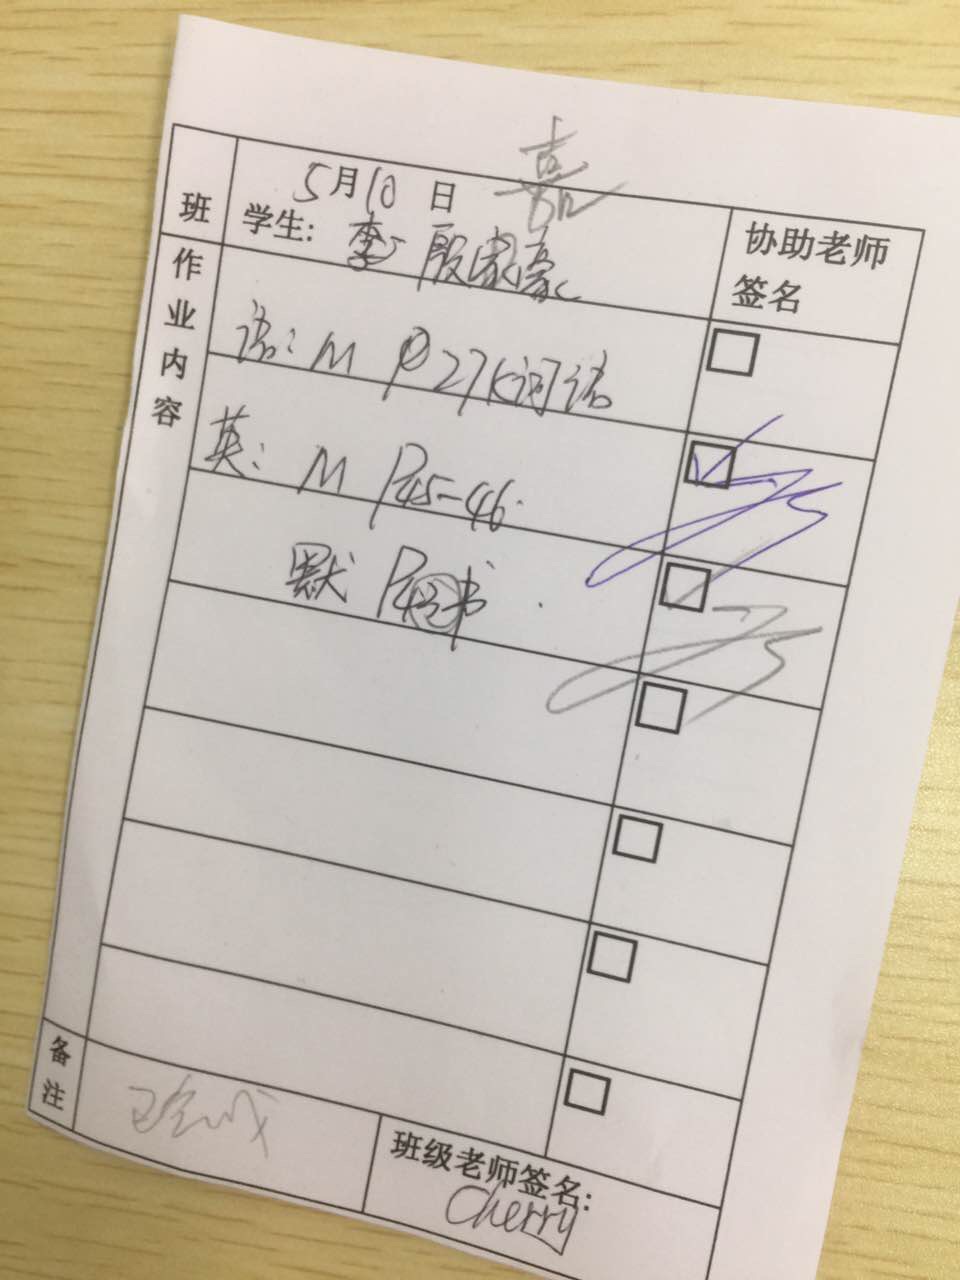 嘉
班
5月10日
学生: 李 殷家豪
协助老师
签名
作业内容
语: M P27 K词语
英: M P45-46.
默 P43书
备注
已完成
班级老师签名:
Cherry